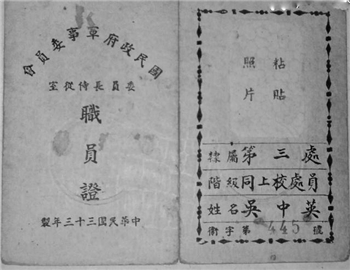 國民政府軍事委員會
委員長侍從室
職員證
中華民國三十三年製
粘貼
照片
隸屬第三處
階級同上校處員
姓名吳中英
衛字第445號